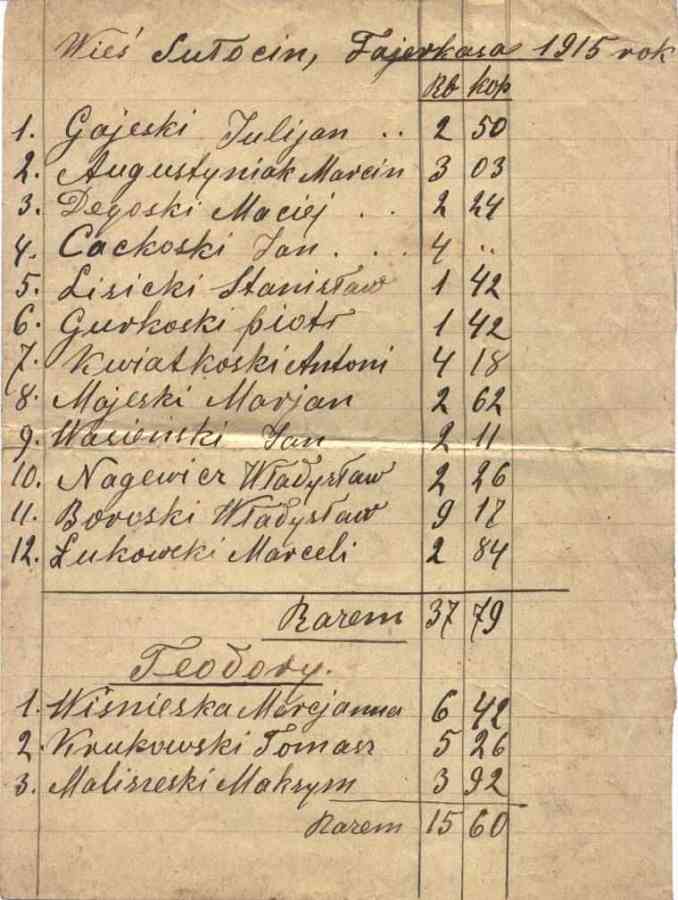 Wieś Sułocin, Fajerkasa 1915 rok
Rb kop
1. Gajeski Julijan .. 2 50
2. Augustyniak Marcin 3 03
3. Degoski Maciej . . 2 24
4. Cackoski Jan . . . 4 ..
5. Lisicki Stanisław 1 42
6. Gurkoski piotr 1 42
7. Kwiatkoski Antoni 4 18
8. Majeski Marjan 2 62
9. Wasieński Jan 2 11
10. Nagewicz Władysław 2 26
11. Boroski Władysław 9 17
12. Łukowcki Marceli 2 84
Razem 37 79
Teodory.
1. Wiśnieska Marcjanna 6 42
2. Krukowski Tomasz 5 26
3. Maliszeski Maksym 3 92
Razem 15 60